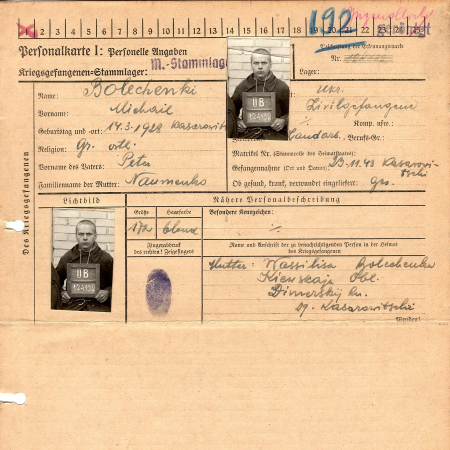 2 3 4 5 6 7 8 9 10 11 12 13 14 15 16 17 18 19 20 21 22 23 24 25
192
Personalkarte I: Personelle Angaben
Kriegsgefangenen-Stammlager: M.-Stammlager
Beschriftung der Erkennungsmarke
Nr.
Lager:
Des Kriegsgefangenen
Name: Bolechenki
Vorname: Michail
Geburtstag und -ort: 14.3.1928 Kasarowit
Religion: Gr. orth.
Vorname des Vaters: Petr
Familienname der Mutter: Naumenko
Ukr.
Zivilgefangene
Komp. usw.:
Landarb. Berufs-Gr.:
Matrikel Nr. (Stammrolle des Heimatstaates):
Gefangennahme (Ort und Datum): 23.11.43 Kasarowi-
tschi
Ob gesund, krank, verwundet eingeliefert: ges.
UB
124192
Lichtbild
Nähere Personalbeschreibung
Größe
Haarfarbe
Besondere Kennzeichen:
1/72
blond
Fingerabdruck
des rechten! Zeigefingers
Name und Anschrift der zu benachrichtigenden Person in der Heimat
des Kriegsgefangenen
Mutter: Wassilisa Bolechenko
Kiewskaja Obl.
Dimerskij Kr.
D. Kasarowitschi
Wenden!
UB
124192